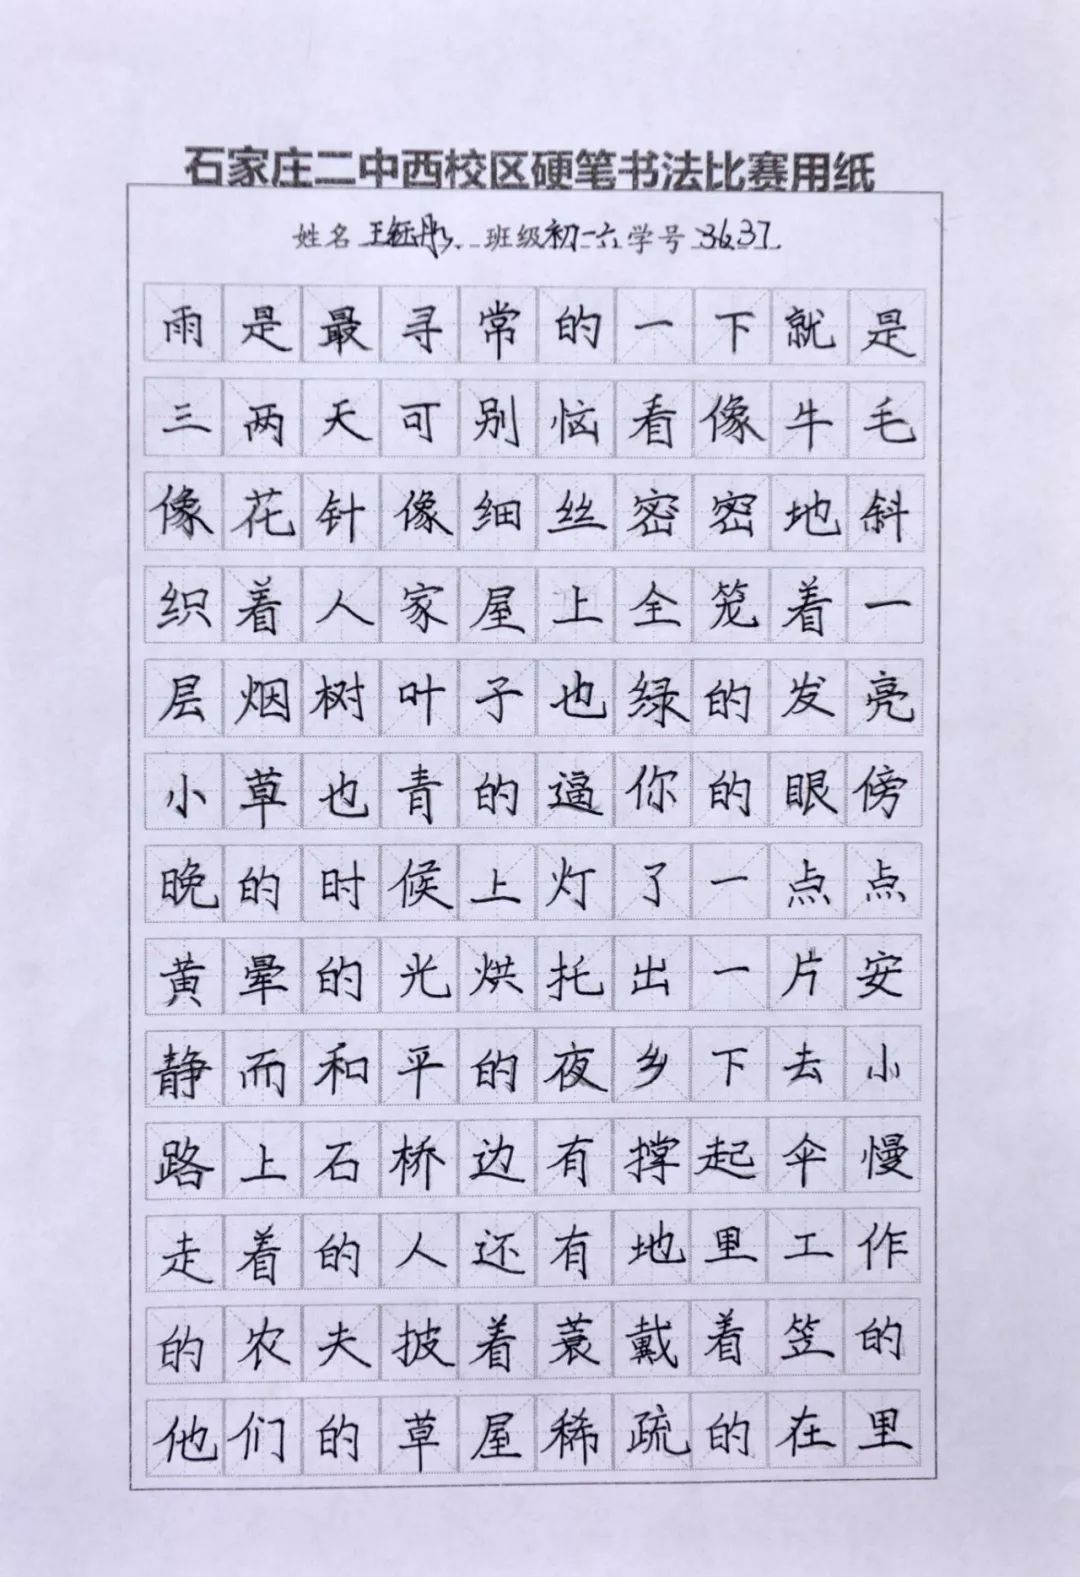 石家庄二中西校区硬笔书法比赛用纸
姓名 王钰彤 班级 初一六 学号 3637
雨是最寻常的一下就是
三两天可别恼看像牛毛
像花针像细丝密密地斜
织着人家屋上全笼着一
层烟树叶子也绿的发亮
小草也青的逼你的眼傍
晚的时候上灯了一点点
黄晕的光烘托出一片安
静而和平的夜乡下去小
路上石桥边有撑起伞慢
走着的人还有地里工作
的农夫披着蓑戴着笠的
他们的草屋稀疏的在里